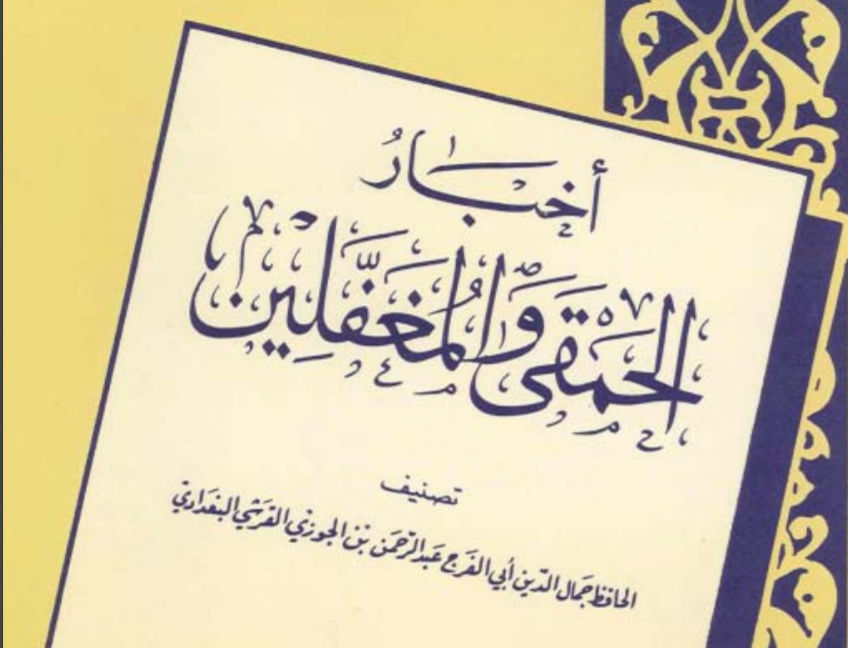 أخبارُ
الحمْقى والمُغفَّلِين
تصنيف
الحافظ جمال الدّين أبي الفَرَج عَبدالرّحمَن بْن الجوزي القرَشي البغدَادي